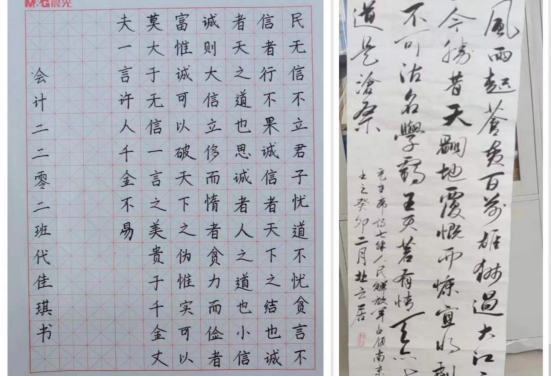 M&G晨光
民无信不立君子忧道不忧贫言不
信者行不果诚信者天下之结也诚
者天之道也思诚者人之道也小信
诚则大信立侈而惰者贫力而俭者
富惟诚可以破天下之伪惟实可以
莫大于无信一言之美贵于千金丈
夫一言许人千金不易
会计二二零二班代佳琪书
風雨起蒼黄百萬雄狮過大江
今勝昔天翻地覆慨而慷宜将剩
不可沽名學霸王天若有情天亦
道是滄桑
毛主席诗七律人民解放军占领南京
癸卯二月